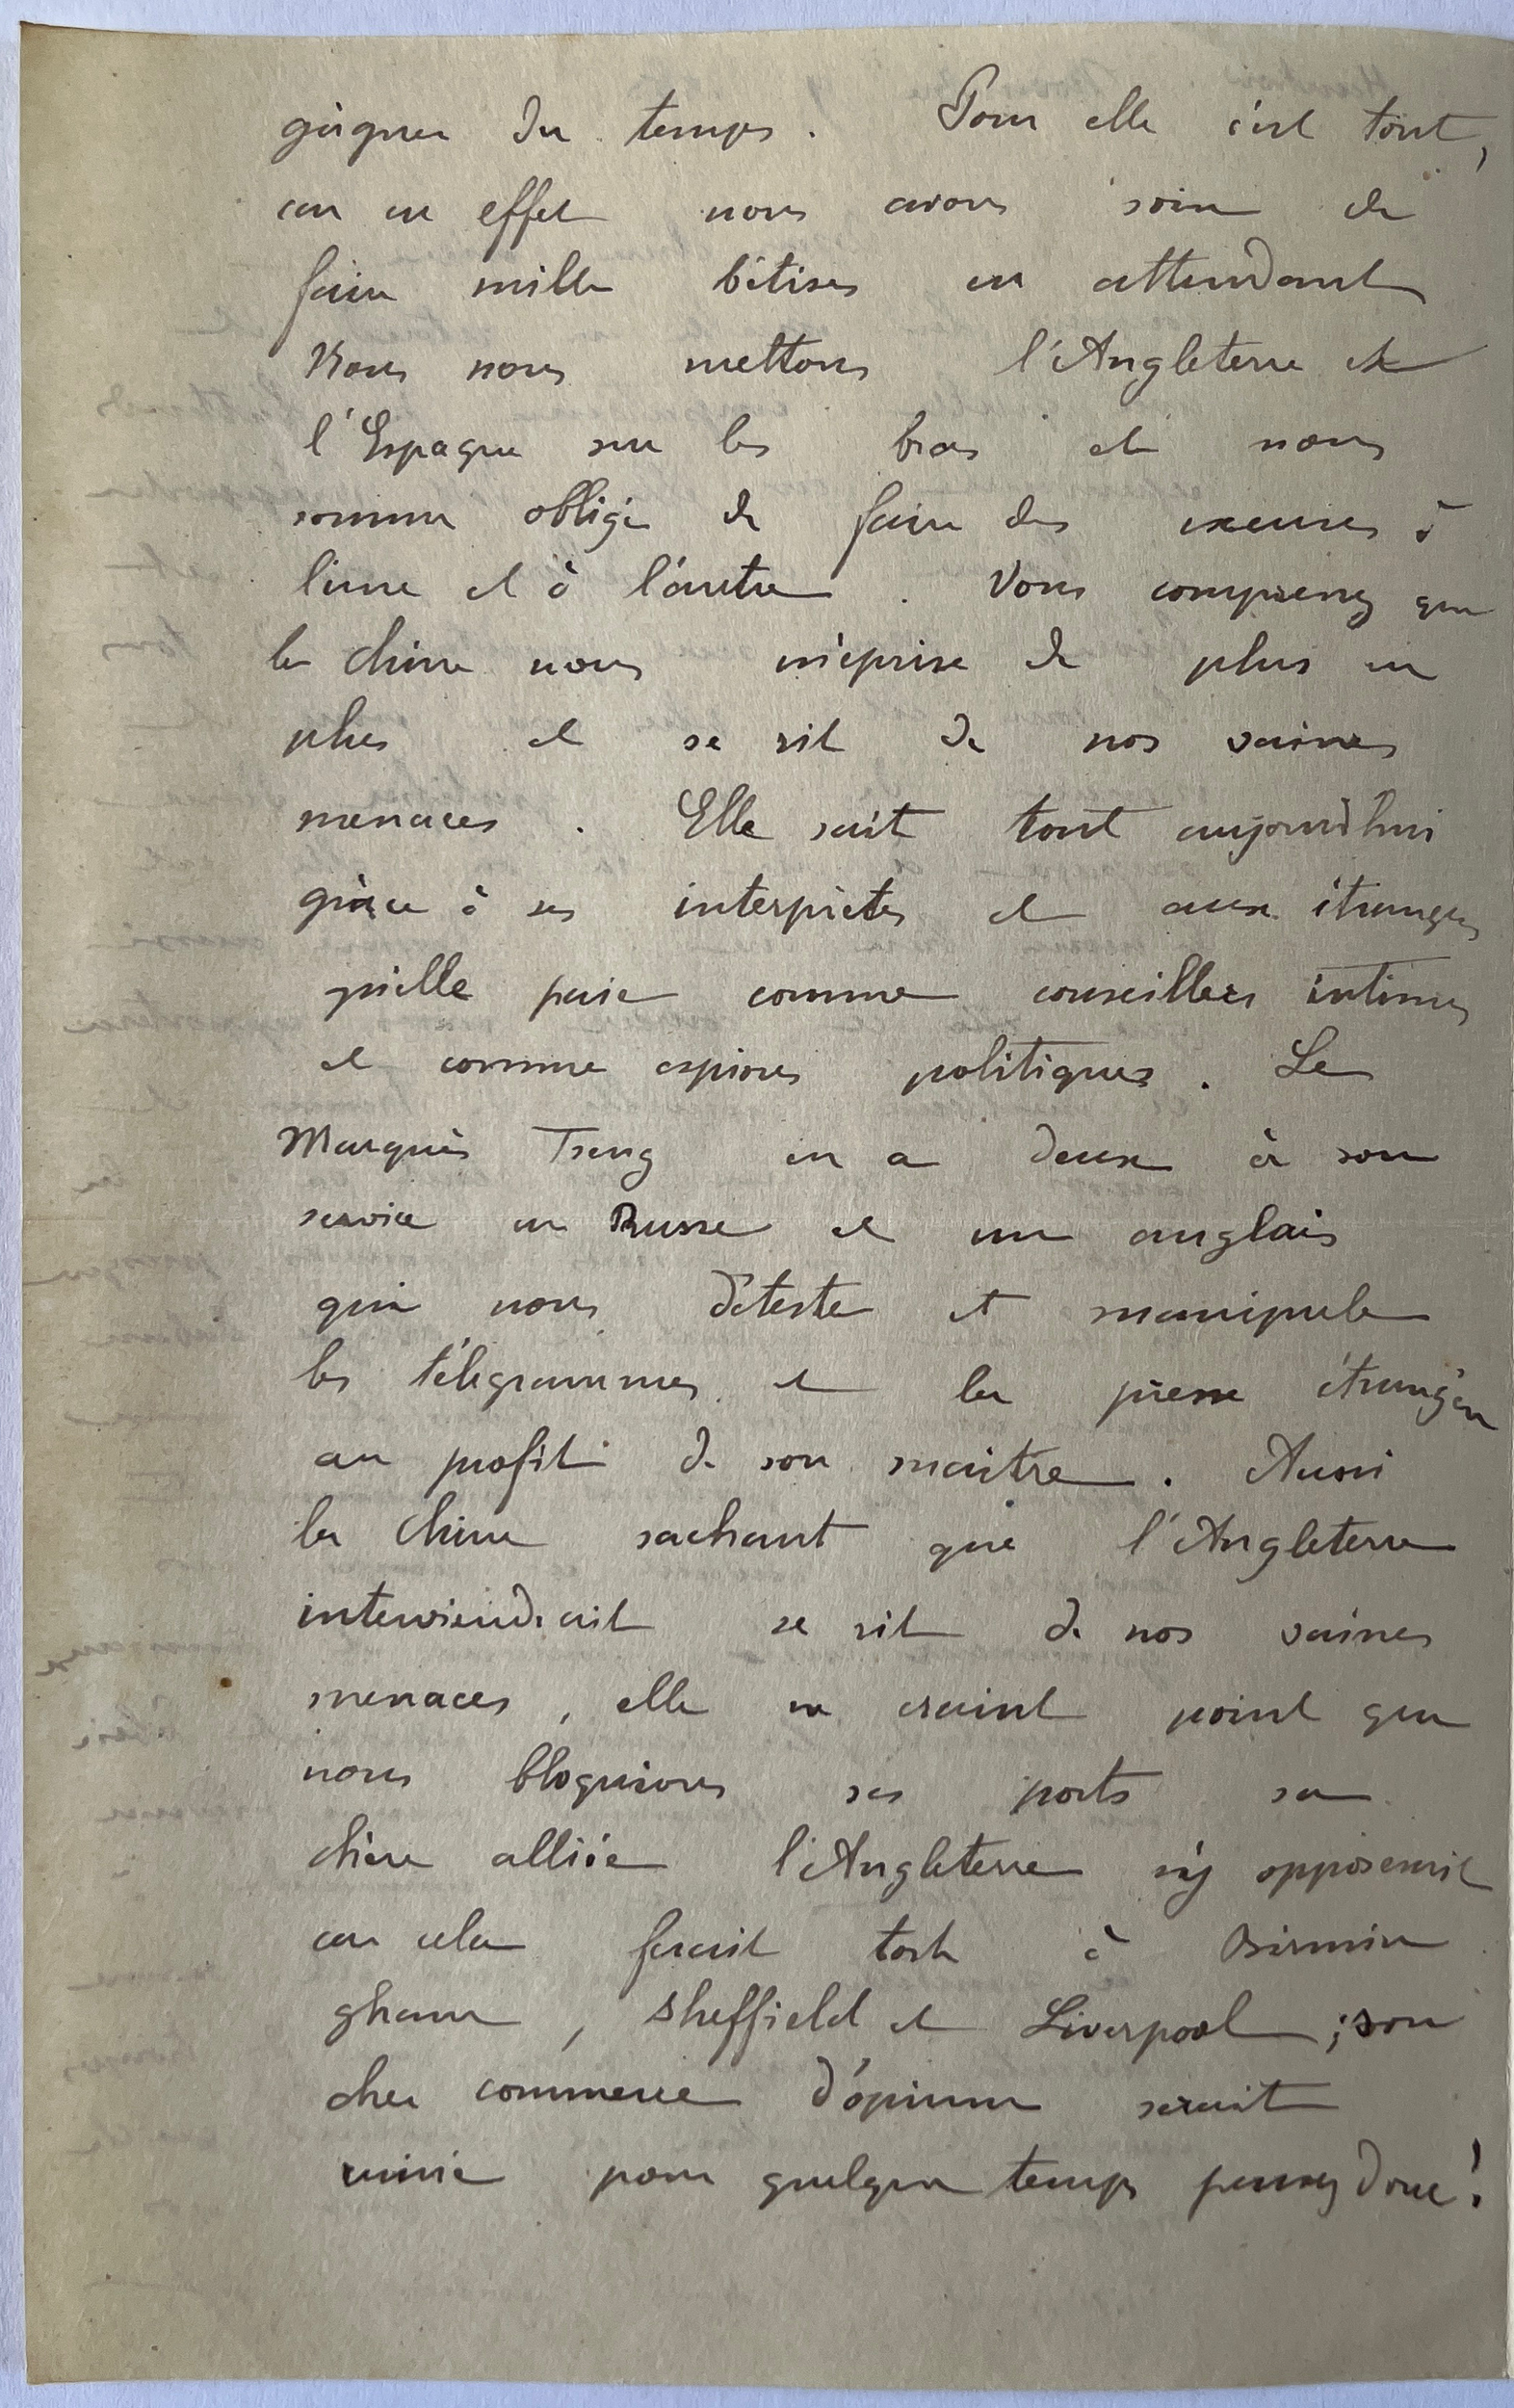 gagner du temps. Pour elle c'est tout,
car en effet nous avons soin de
faire mille bêtises en attendant
Nous nous mettons l'Angleterre et
l'Espagne sur les bras et nous
somme obligé de faire des excuses à
l'une et à l'autre. Vous comprenez que
la Chine nous méprise de plus en
plus et se rit de nos vaines
menaces. Elle sait tout aujourd'hui
grâce à ses interprètes et aux étrangers
qu'elle paie comme conseillers intimes
et comme espions politiques. Le
Marquis Tseng en a deux à son
service un Russe et un anglais
qui nous déteste et manipule
les télégrammes et la presse étrangère
au profit de son maître. Aussi
la Chine sachant que l'Angleterre
interviendrait se rit de nos vaines
menaces, elle ne craint point que
nous bloquions ses ports sa
chère alliée l'Angleterre s'y opposerait
car cela ferait tort à Birmin
gham, Sheffield et Liverpool ; son
cher commerce d'opium serait
ruiné pour quelque temps pensez donc !